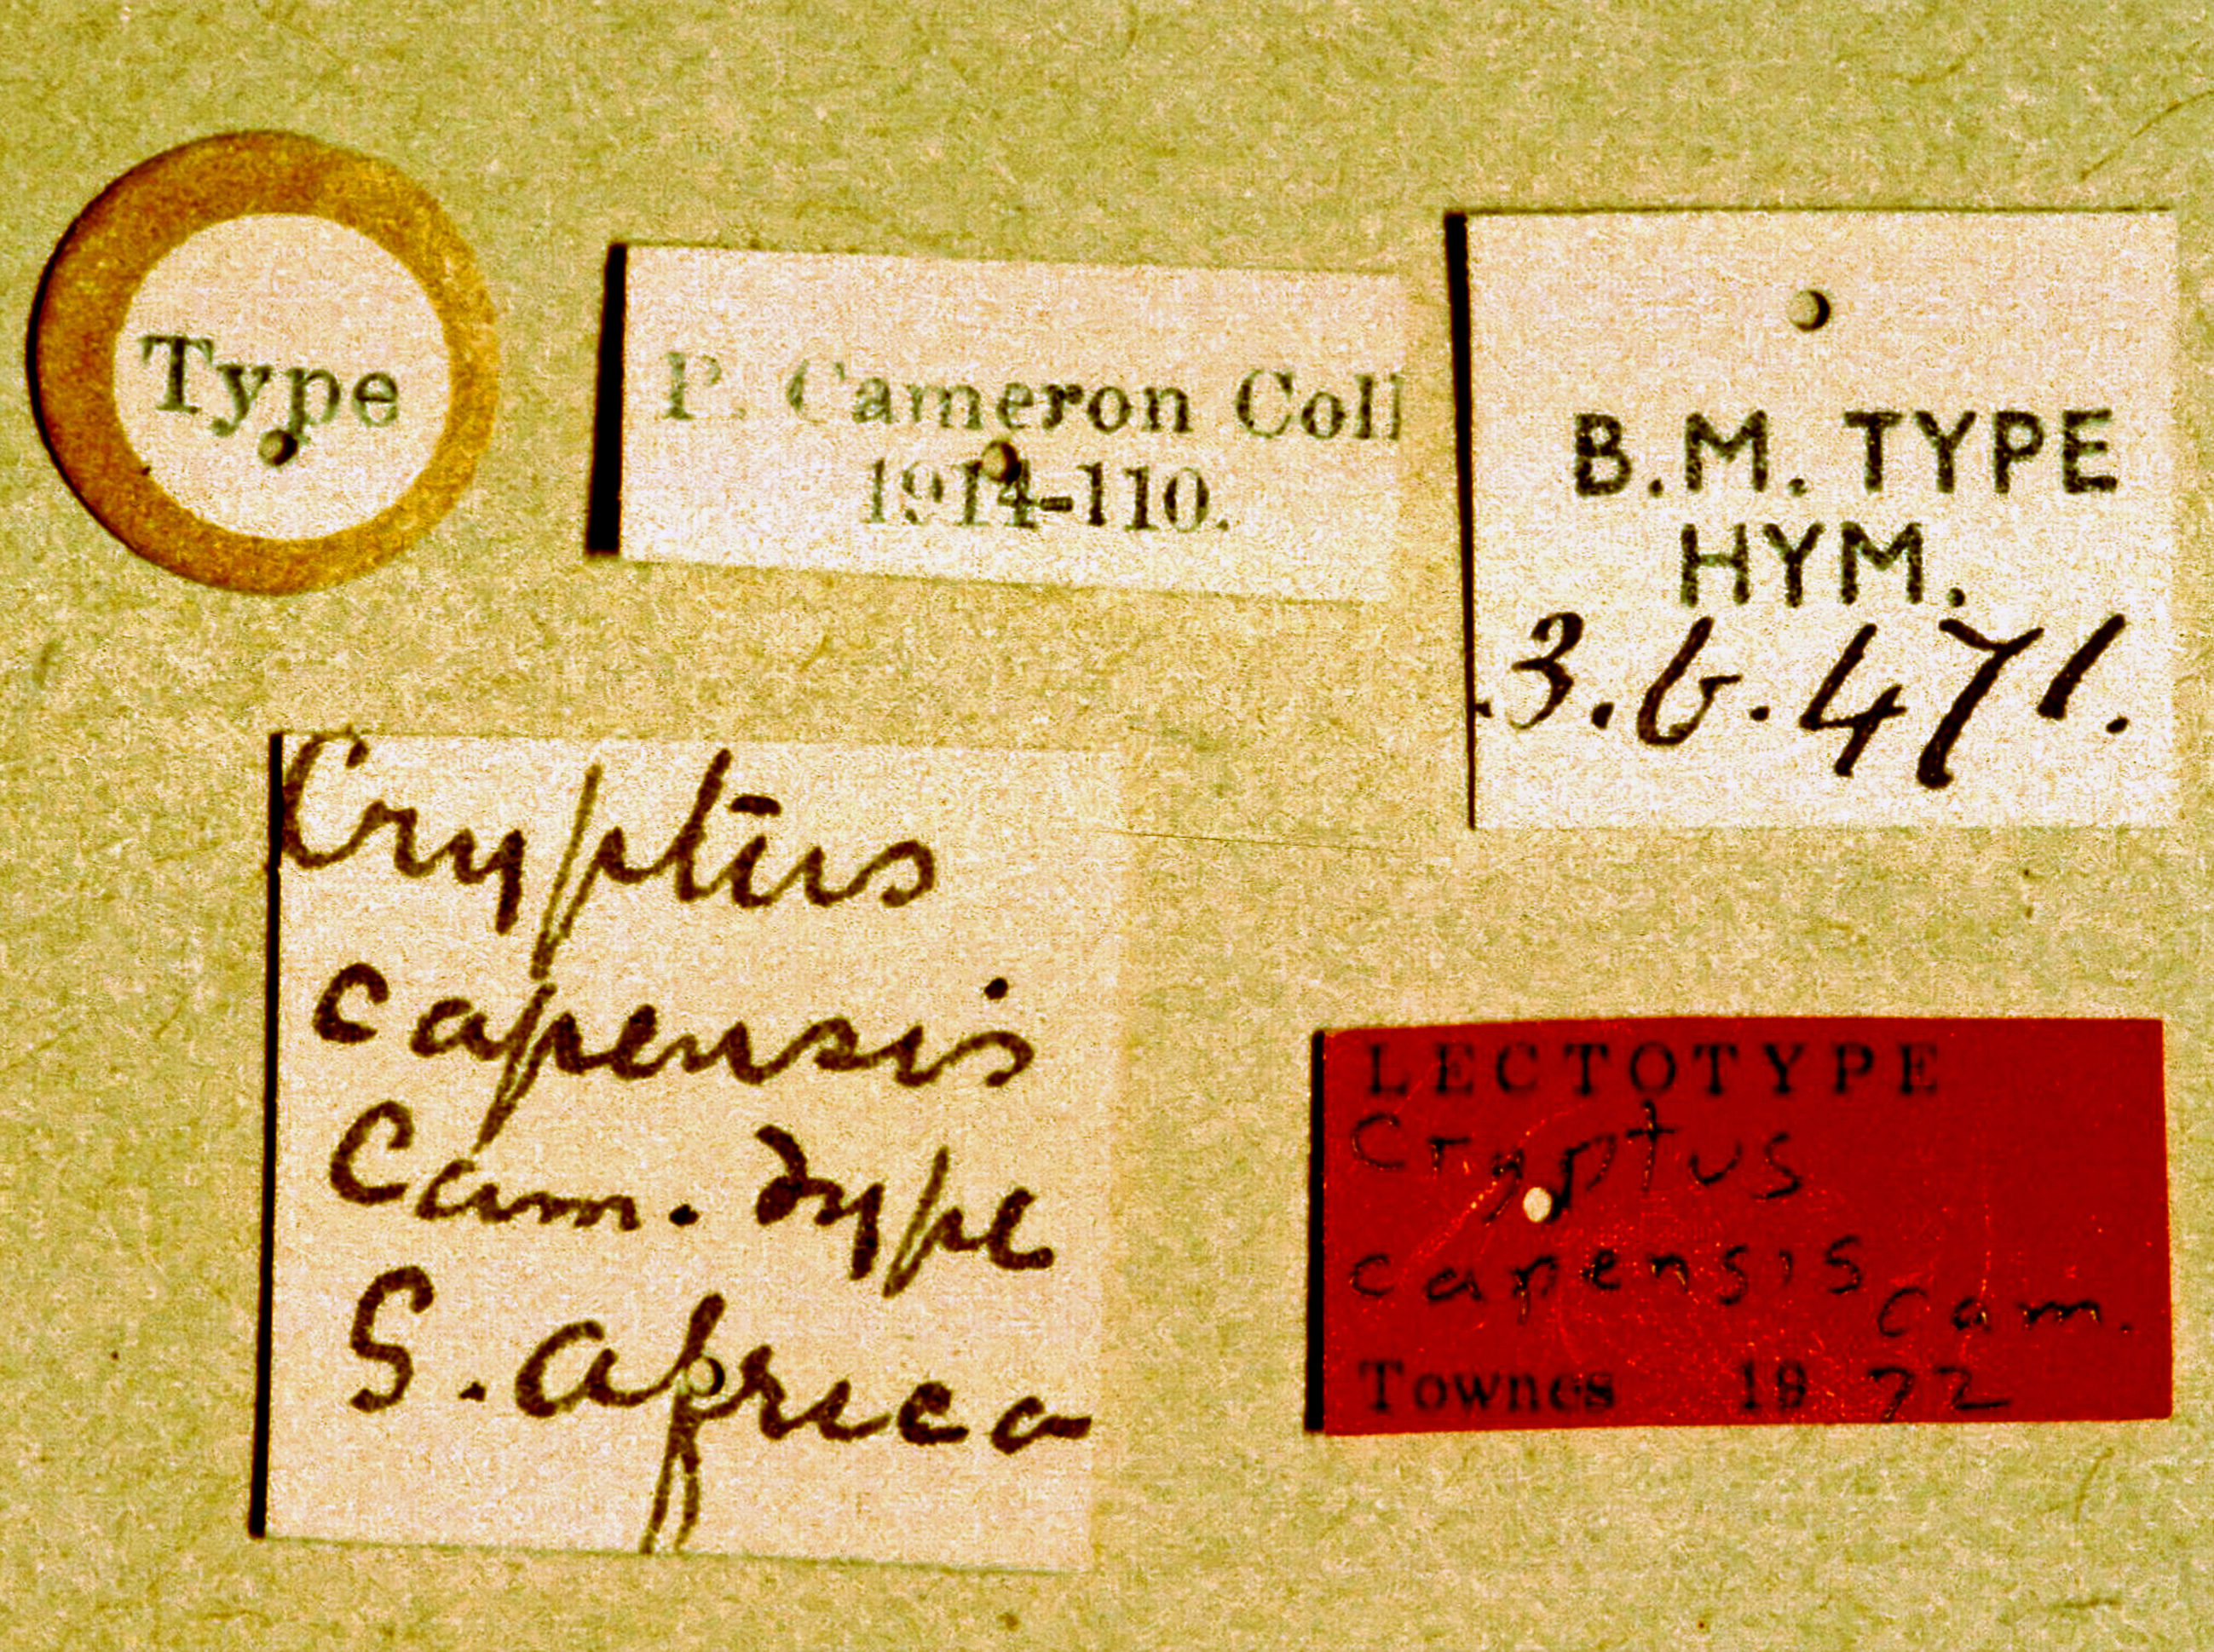 Type
P. Cameron Coll
1914-110.
B.M. TYPE
HYM.
3.b.471.
Cryptus
capensis
Cam. Type
S. africa
LECTOTYPE
Cryptus
capensis Cam.
Townes 1972